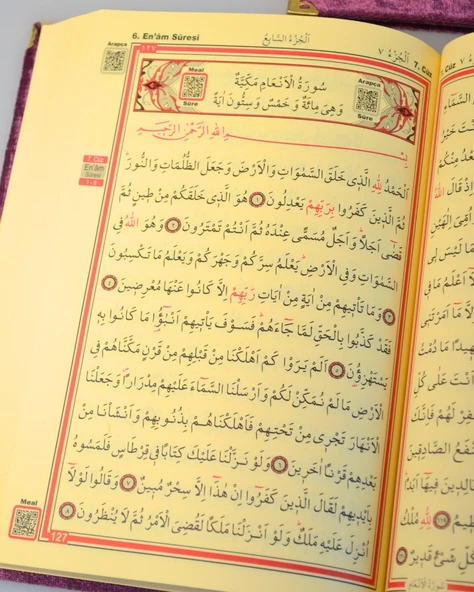 6. En'âm Sûresi
اَلْجُزْءُ السَّابِعُ
اَلْجُزْءُ ٧
7. Cüz
Arapça
١٢٧
Meal
Sûre
سُورَةُ الْاَنْعَامِ مَكِّيَّةٌ
وَهِيَ مِائَةٌ وَ خَمْسٌ وَ سِتُّونَ اٰيَةً
Arapça
Sûre
بِسْمِ اللّٰهِ الرَّحْمٰنِ الرَّحِيمِ
7. Cüz
En'âm
Sûresi
1 - 8
اَلْحَمْدُ لِلّٰهِ الَّذِى خَلَقَ السَّمٰوَاتِ وَالْاَرْضَ وَجَعَلَ الظُّلُمَاتِ وَالنُّورَ
ثُمَّ الَّذِينَ كَفَرُوا بِرَبِّهِمْ يَعْدِلُونَ ١ هُوَ الَّذِى خَلَقَكُمْ مِنْ طِينٍ ثُمَّ
قَضٰٓى اَجَلًا وَاَجَلٌ مُسَمًّى عِنْدَهُ ثُمَّ اَنْتُمْ تَمْتَرُونَ ٢ وَهُوَ اللّٰهُ فِى
السَّمٰوَاتِ وَفِى الْاَرْضِ يَعْلَمُ سِرَّكُمْ وَجَهْرَكُمْ وَيَعْلَمُ مَا تَكْسِبُونَ
٣ وَمَا تَأْتِيهِمْ مِنْ اٰيَةٍ مِنْ اٰيَاتِ رَبِّهِمْ اِلَّا كَانُوا عَنْهَا مُعْرِضِينَ ٤
فَقَدْ كَذَّبُوا بِالْحَقِّ لَمَّا جَٓاءَهُمْ فَسَوْفَ يَأْتِيهِمْ اَنْبٰٓؤُا مَا كَانُوا بِهِ
يَسْتَهْزِؤُنَ ٥ اَلَمْ يَرَوْا كَمْ اَهْلَكْنَا مِنْ قَبْلِهِمْ مِنْ قَرْنٍ مَكَّنَّاهُمْ فِى
الْاَرْضِ مَا لَمْ نُمَكِّنْ لَكُمْ وَاَرْسَلْنَا السَّمَٓاءَ عَلَيْهِمْ مِدْرَارًا وَجَعَلْنَا
الْاَنْهَارَ تَجْرِى مِنْ تَحْتِهِمْ فَاَهْلَكْنَاهُمْ بِذُنُوبِهِمْ وَاَنْشَأْنَا مِنْ
بَعْدِهِمْ قَرْنًا اٰخَرِينَ ٦ وَلَوْ نَزَّلْنَا عَلَيْكَ كِتَابًا فِى قِرْطَاسٍ فَلَمَسُوهُ
بِاَيْدِيهِمْ لَقَالَ الَّذِينَ كَفَرُوا اِنْ هٰذَٓا اِلَّا سِحْرٌ مُبِينٌ ٧ وَقَالُوا لَوْلَٓا
اُنْزِلَ عَلَيْهِ مَلَكٌ وَلَوْ اَنْزَلْنَا مَلَكًا لَقُضِىَ الْاَمْرُ ثُمَّ لَا يُنْظَرُونَ ٨
Meal
127